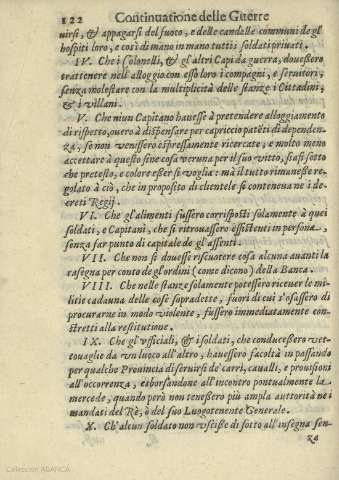 122 Continuatione delle Guerre
uirsi, & appagarsi del fuoco, e delle candelle communi degl'
hospiti loro, e così di mano in mano tutti i soldati priuati.
IV. Che i Colonelli, & gl'altri Capi da guerra, douessero
trattenere nell'alloggio con esso loro i compagni, e seruitori,
senza molestare con la multiplicità delle stanze i Cittadini,
& i villani.
V. Che niun Capitano hauesse à pretendere alloggiamento
di rispetto, ouero à dispensare per capriccio patēti di dependen-
za, se non venissero espressamente ricercate, e molto meno
accettare à questo fine cosa veruna per il suo vitto, siasi sotto
che pretesto, e colore esser si voglia: mà il tutto rimanesse re-
golato à ciò, che in proposito di clientele si conteneua ne i de-
creti Regij.
VI. Che gl'alimenti fussero corrisposti solamente à quei
soldati, e Capitani, che si ritrouassero essistenti in persona,
senza far punto di capitale de gl'assenti.
VII. Che non si douesse riscuotere cosa alcuna auanti la
rasegna per conto degl'ordini (come dicono) della Banca.
VIII. Che nelle stanze solamente potessero riceuer le mi-
litie caduna delle cose sopradette, fuori di cui s'osassero di
procurarne in modo violente, fussero immediatamente con-
stretti alla restitutione.
IX. Che gl'vfficiali, & i soldati, che conducessero vet-
touaglie da vn luoco all'altro, hauessero facoltà in passando
per qualche Prouincia di seruirsi de' carri, caualli, e prouisioni
all'occorrenza, esborsandone all'incontro pontualmente la
mercede, quando però non tenessero più ampla autorità ne i
mandati del Rè, ò del suo Luogotenente Generale.
X. Ch'alcun soldato non vscisse di sotto all'insegna sen-
za
Colección ABANCA